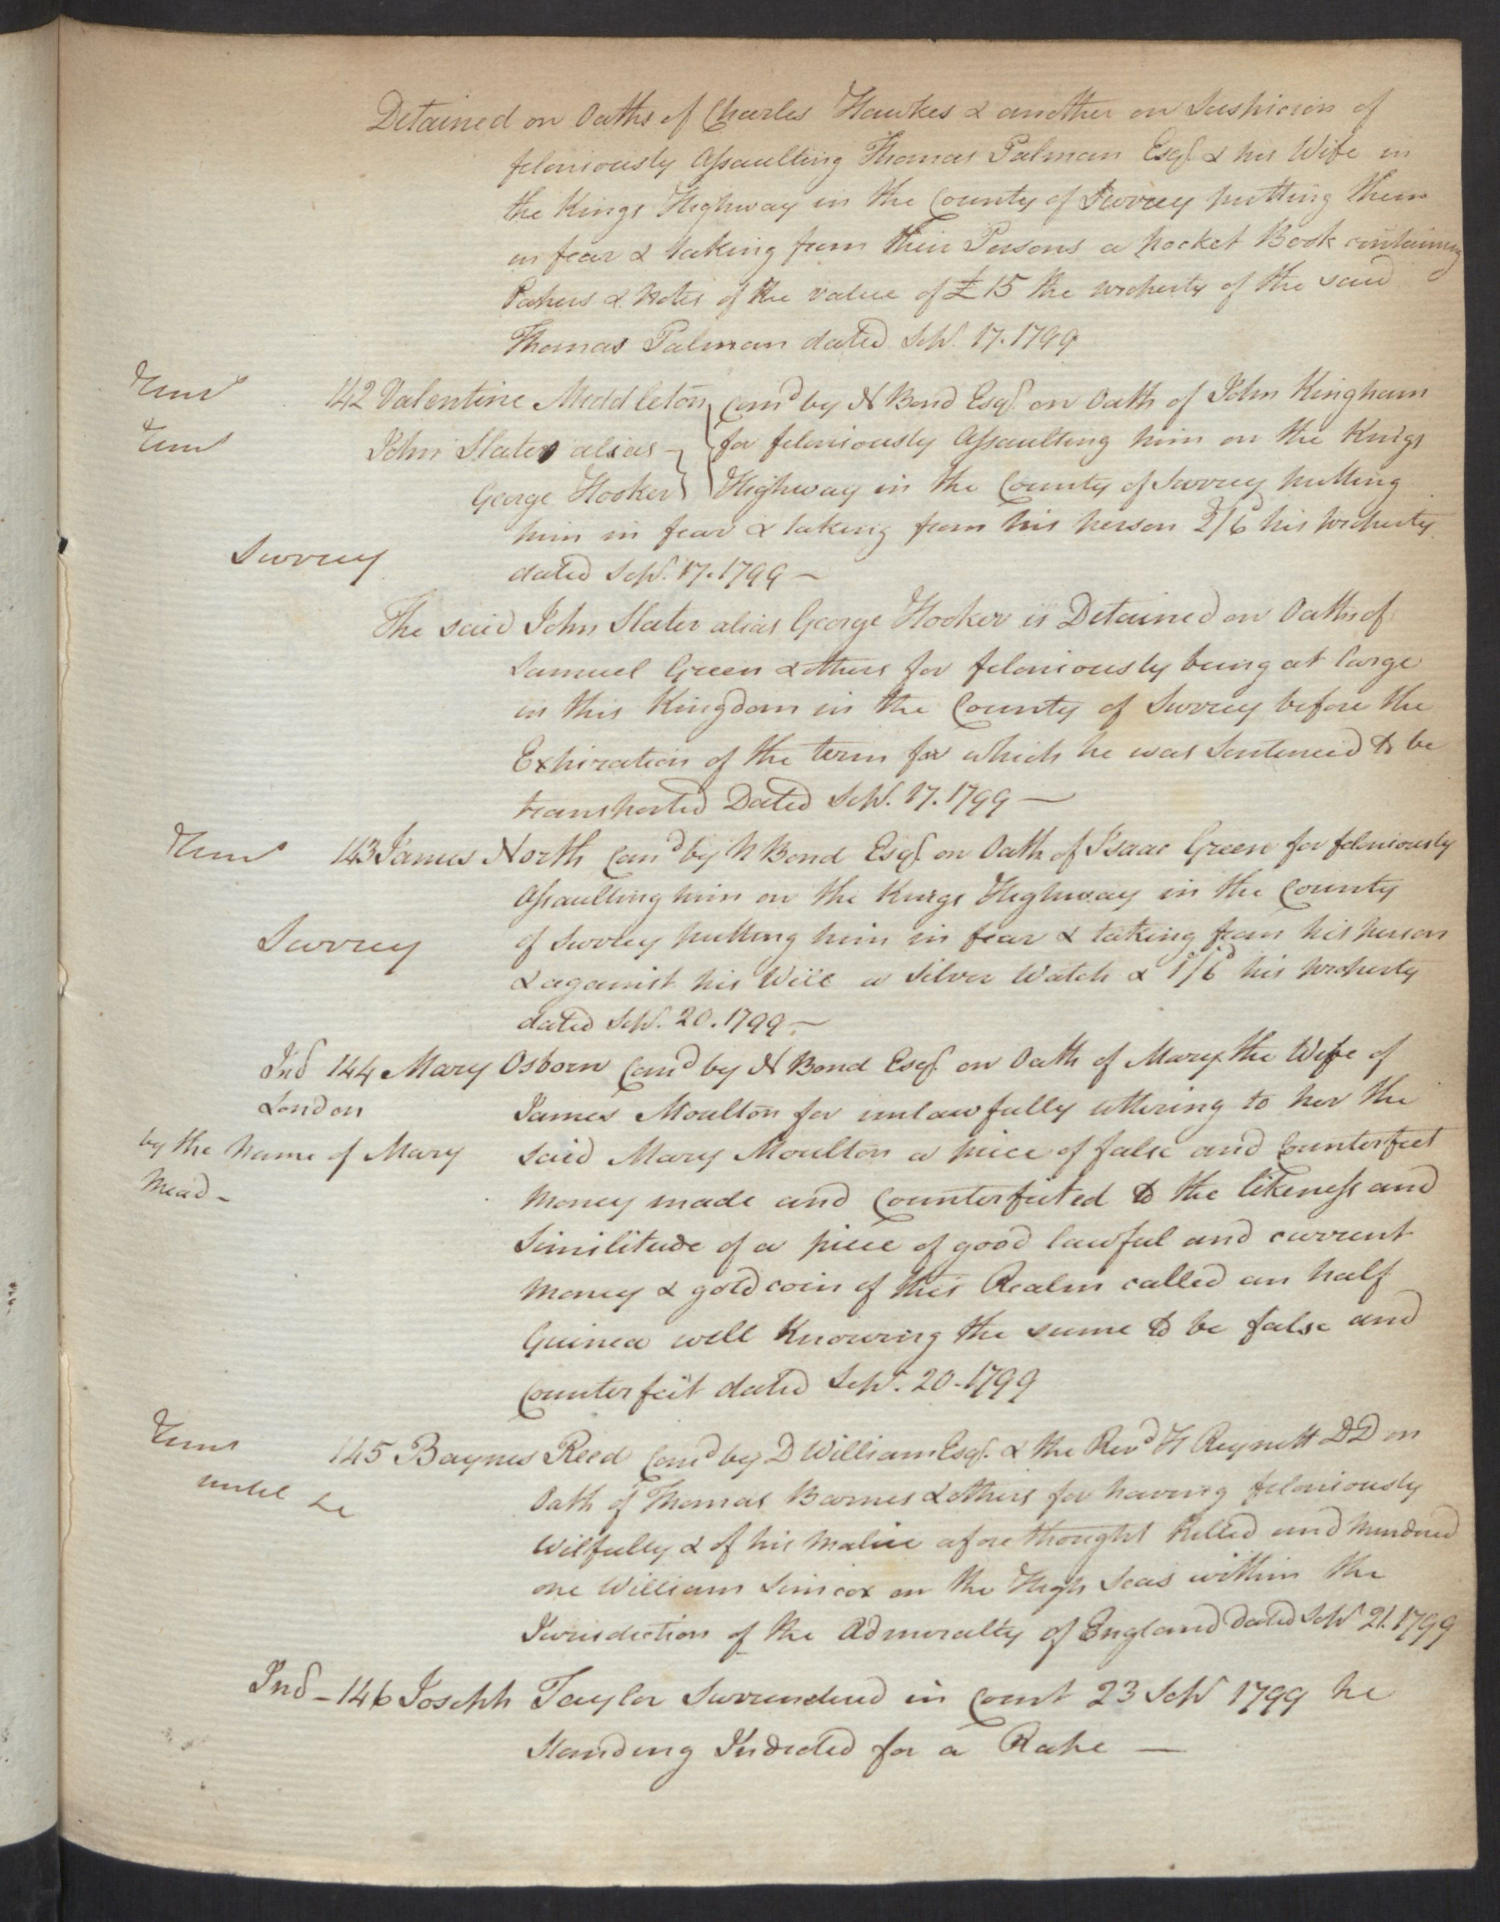 Detained on Oaths of Charles Hawkes & another on Suspicion of
feloniously Assaulting Thomas Palman Esqr. & his Wife in
the Kings Highway in the County of Surrey putting them
in fear & taking from their Persons a pocket Book containing
Papers & Notes of the value of £15 the property of the said
Thomas Palman dated Sepr. 17. 1799
Remd
142 Valentine Middleton Comd by N Bond Esqr. on Oath of John Kingham
Remd
John Slater alias for feloniously Assaulting him on the Kings
George Hooker Highway in the County of Surrey putting
him in fear & taking from his person 2s/6d his property
Surrey
dated Sepr. 17. 1799 —
The said John Slater alias George Hooker is Detained on Oaths of
Samuel Green & others for feloniously being at large
in this Kingdom in the County of Surrey before the
Expiration of the term for which he was Sentenced to be
transported Dated Sepr. 17. 1799 —
Remd
143 James North Comd by N Bond Esqr. on Oath of Isaac Green for feloniously
Assaulting him on the Kings Highway in the County
Surrey
of Surrey putting him in fear & taking from his person
& against his Will a Silver Watch & 1s/6d his property
dated Sepr. 20. 1799 —
Ind 144 Mary Osborn Comd by N Bond Esqr. on Oath of Mary the Wife of
London
James Moulton for unlawfully uttering to her the
by the Name of Mary
said Mary Moulton a piece of false and Counterfeit
Mead —
Money made and Counterfeited to the likeness and
Similitude of a piece of good lawful and current
Money & gold coin of this Realm called an half
Guinea well Knowing the same to be false and
Counterfeit dated Sepr. 20. 1799
Remd
145 Baynes Reed Comd by D William Esqr. & the Revd H Reynett DD on
until he
Oath of Thomas Barnes & others for having feloniously
Wilfully & of his Malice aforethought Killed and Murdered
one William Simcox on the High Seas within the
Jurisdiction of the Admiralty of England dated Sepr 21. 1799
Ind — 146 Joseph Taylor Surrendered in Court 23 Sepr 1799 he
Standing Indicted for a Rape —